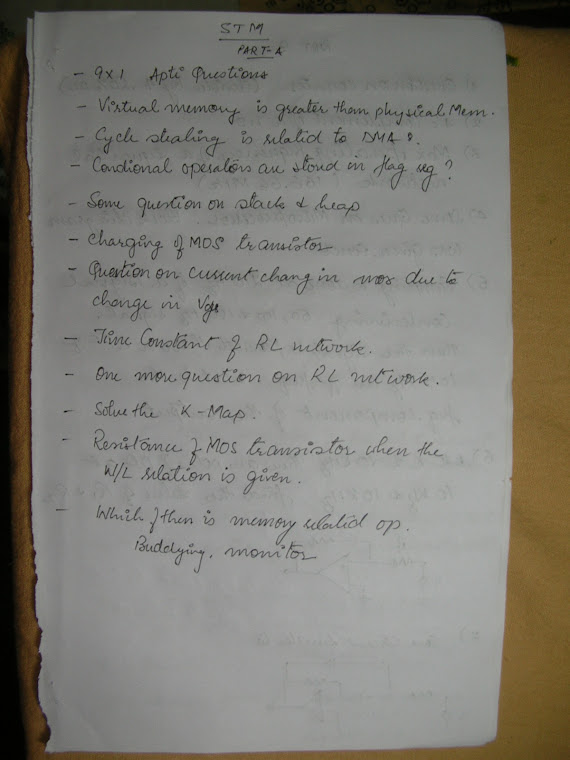 STM
PART-A
- 9x1 Apti Questions
- Virtual memory is greater than physical Mem.
- Cycle stealing is related to DMA?
- Condional operators are stored in flag reg?
- Some question on stack & heap
- Charging of MOS transistor
- Question on current chang in mos due to
change in Vgs
- Time Constant of RL network.
- One more question on RL network.
- Solve the K-Map.
- Resistance of MOS transistor when the
W/L relation is given.
- Which of them is memory related op.
Buddying, monitor